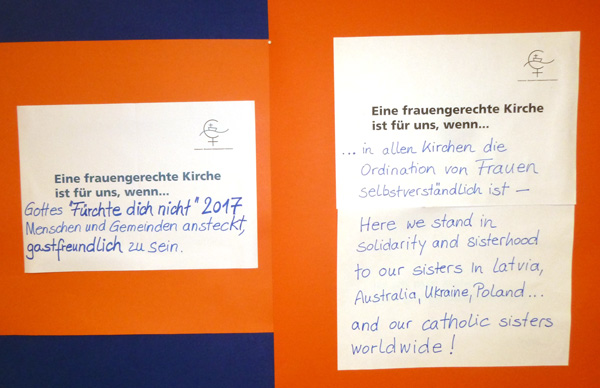 Eine frauengerechte Kirche
ist für uns, wenn...
Gottes "Fürchte dich nicht" 2017
Menschen und Gemeinden ansteckt,
gastfreundlich zu sein.
Eine frauengerechte Kirche
ist für uns, wenn...
... in allen Kirchen die
Ordination von Frauen
selbstverständlich ist –
Here we stand in
solidarity and sisterhood
to our sisters in Latvia,
Australia, Ukraine, Poland...
and our catholic sisters
worldwide!